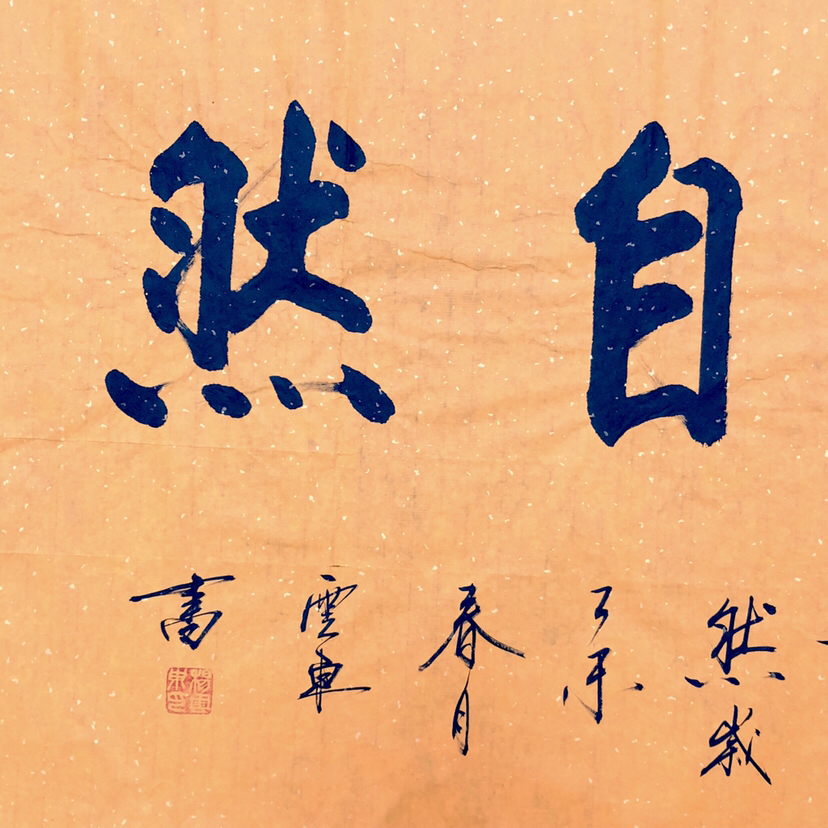 自然
然歲
春月
雲東
書